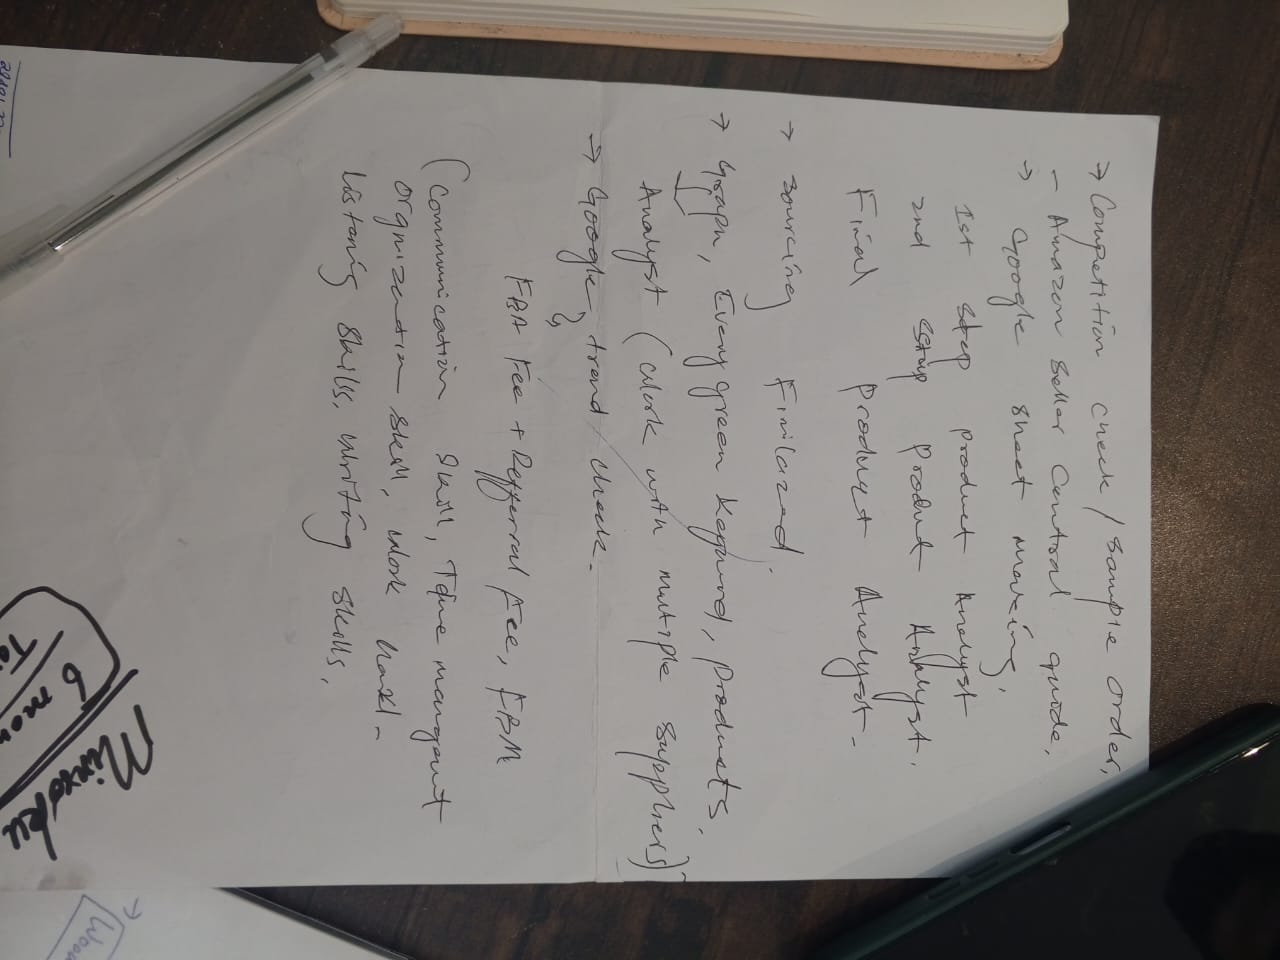 → Competition check / sample order,
- Amazon seller Central guide,
→ Google sheet making,
1st step product Analyst
2nd setup Product Analyst.
Final Product Analyst -
→ sourcing Finilazed.
→ Graph, Every green Keyword, Products,
Analyst (Work with multiple suppliers)-
→ Google trend check -
FBA Fee + Refferal Fee, FBM
(Communication Skill, Time
Skill, Work
skills, writing skills,
6